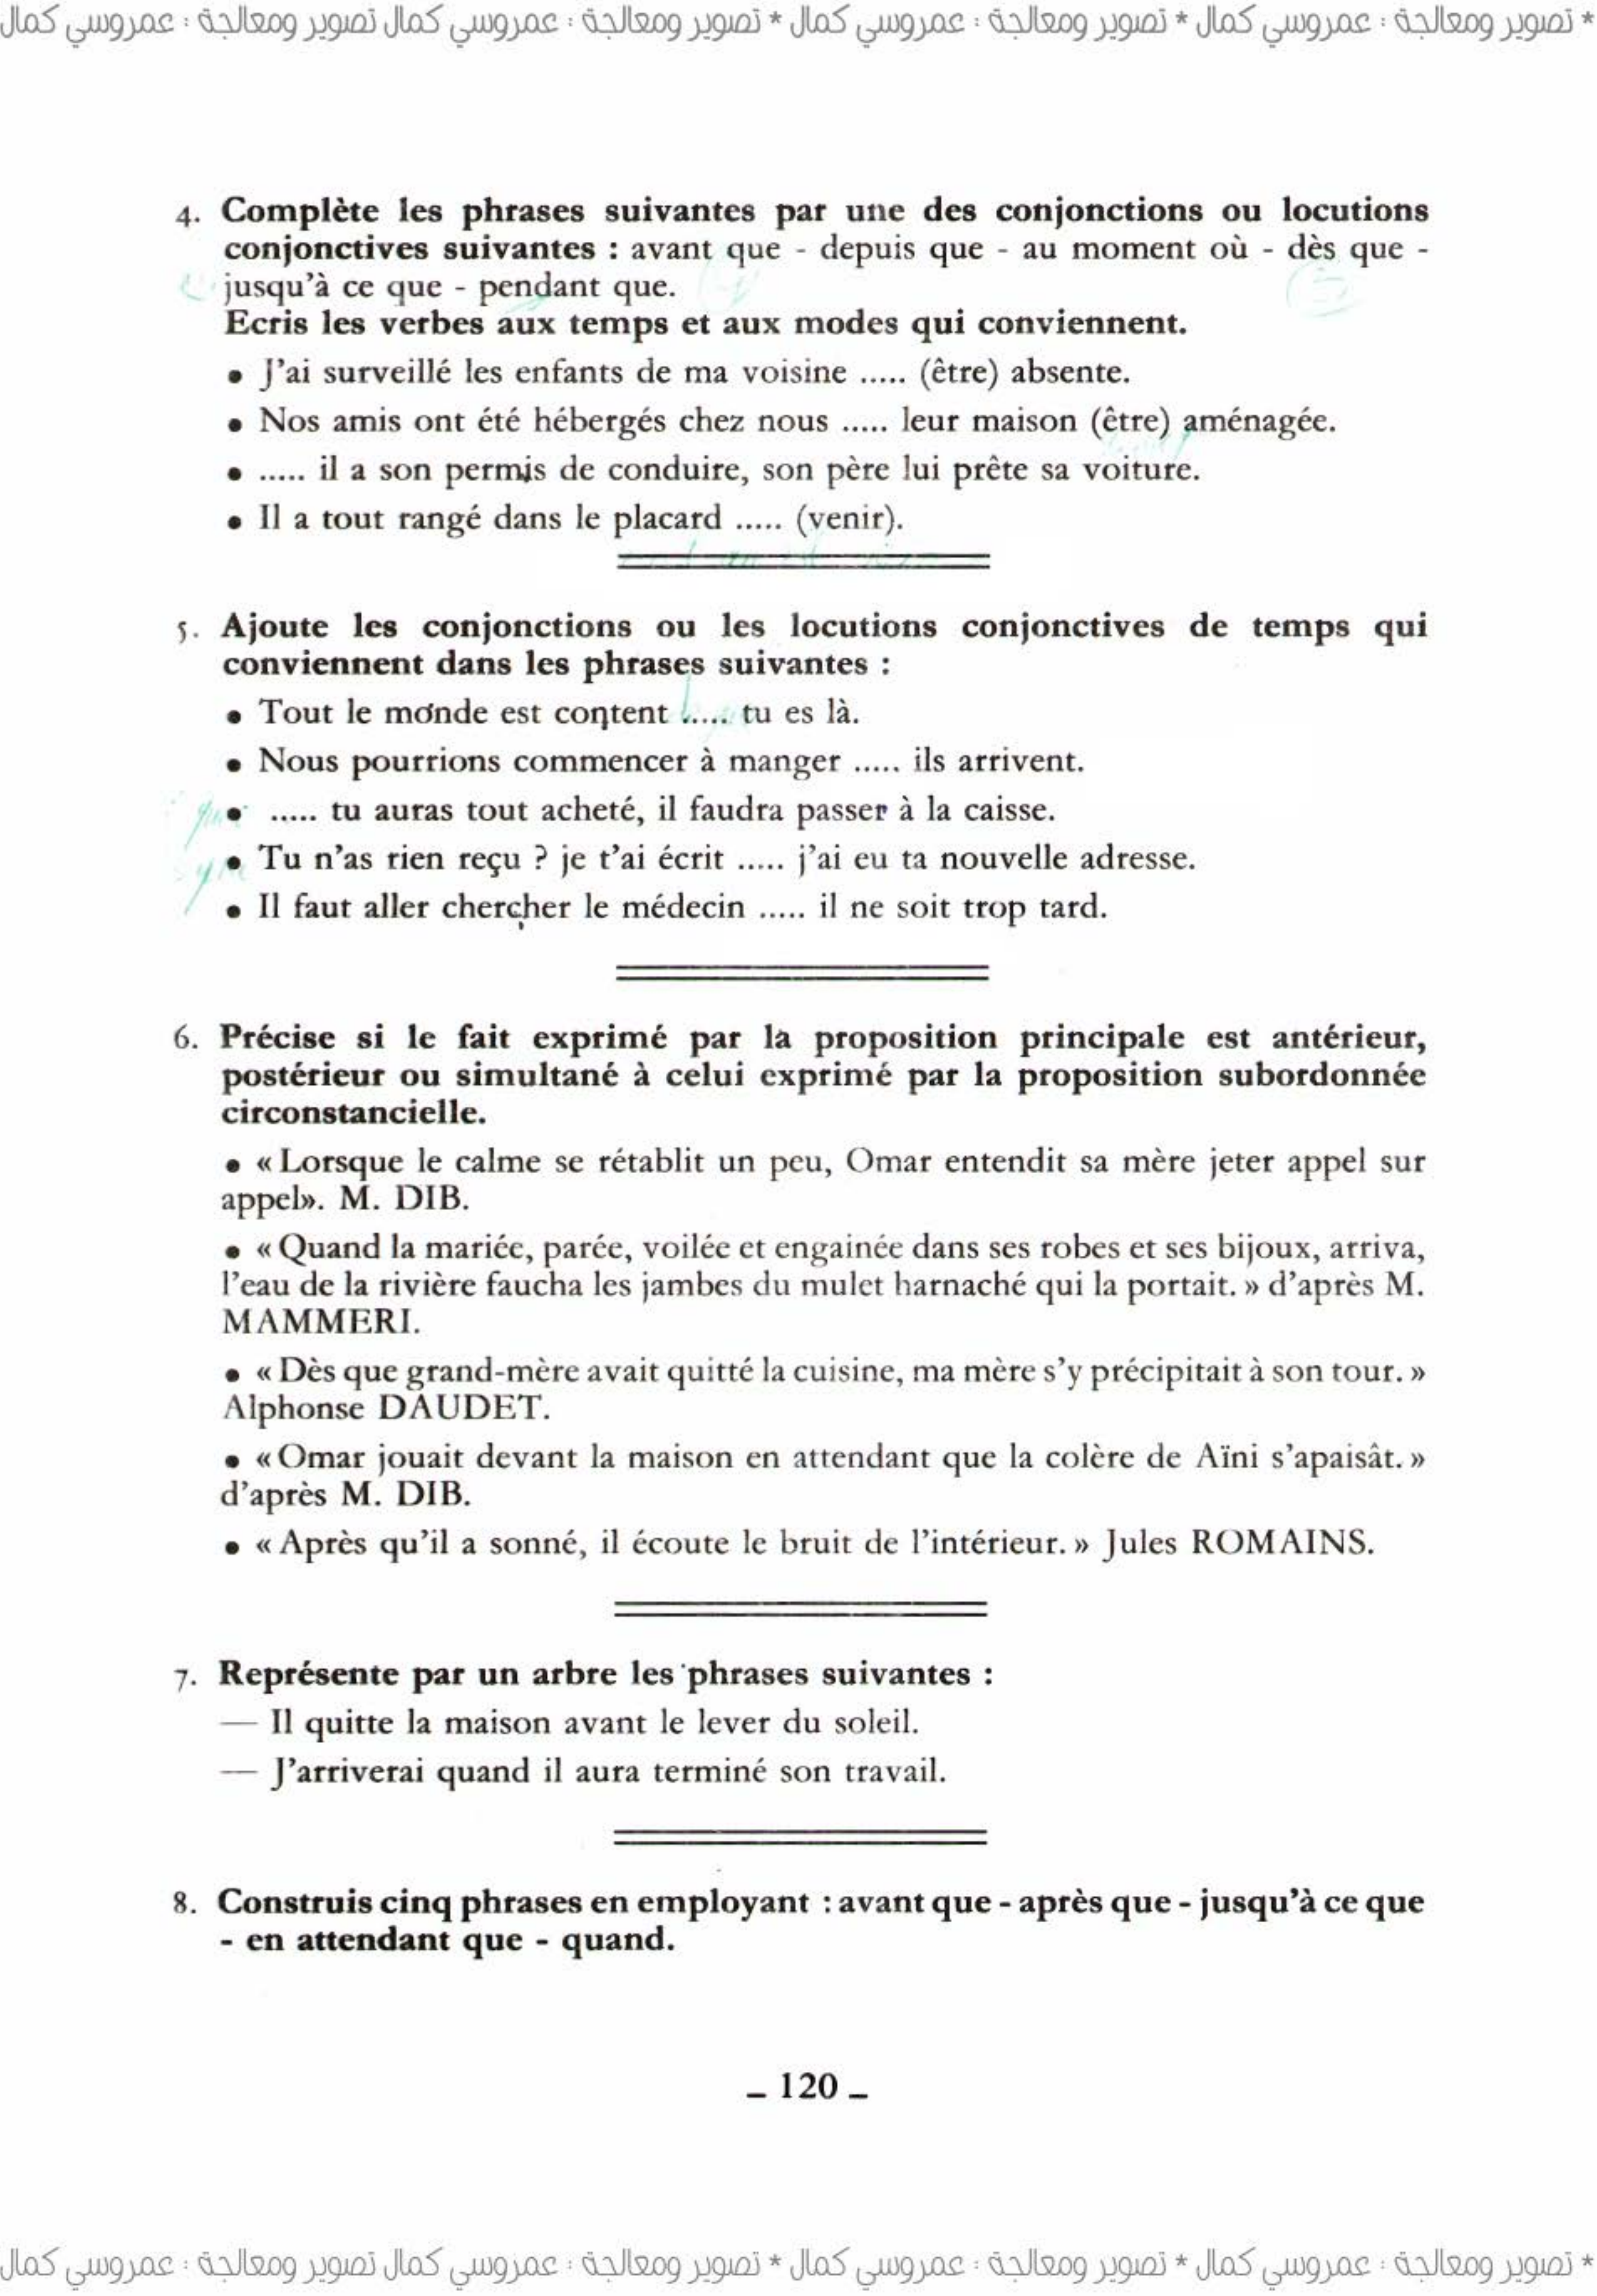 * تصوير ومعالجة : عمروسي كمال * تصوير ومعالجة : عمروسي كمال * تصوير ومعالجة : عمروسي كمال تصوير ومعالجة : عمروسي كمال
4. Complète les phrases suivantes par une des conjonctions ou locutions
conjonctives suivantes : avant que - depuis que - au moment où - dès que -
jusqu'à ce que - pendant que.
Ecris les verbes aux temps et aux modes qui conviennent.
• J'ai surveillé les enfants de ma voisine ..... (être) absente.
• Nos amis ont été hébergés chez nous ..... leur maison (être) aménagée.
• ..... il a son permis de conduire, son père lui prête sa voiture.
• Il a tout rangé dans le placard ..... (venir).
5. Ajoute les conjonctions ou les locutions conjonctives de temps qui
conviennent dans les phrases suivantes :
• Tout le monde est content ..... tu es là.
• Nous pourrions commencer à manger ..... ils arrivent.
• ..... tu auras tout acheté, il faudra passer à la caisse.
• Tu n'as rien reçu ? je t'ai écrit ..... j'ai eu ta nouvelle adresse.
• Il faut aller chercher le médecin ..... il ne soit trop tard.
6. Précise si le fait exprimé par la proposition principale est antérieur,
postérieur ou simultané à celui exprimé par la proposition subordonnée
circonstancielle.
• « Lorsque le calme se rétablit un peu, Omar entendit sa mère jeter appel sur
appel». M. DIB.
• « Quand la mariée, parée, voilée et engainée dans ses robes et ses bijoux, arriva,
l'eau de la rivière faucha les jambes du mulet harnaché qui la portait. » d'après M.
MAMMERI.
• « Dès que grand-mère avait quitté la cuisine, ma mère s'y précipitait à son tour. »
Alphonse DAUDET.
• « Omar jouait devant la maison en attendant que la colère de Aïni s'apaisât. »
d'après M. DIB.
• « Après qu'il a sonné, il écoute le bruit de l'intérieur. » Jules ROMAINS.
7. Représente par un arbre les phrases suivantes :
— Il quitte la maison avant le lever du soleil.
— J'arriverai quand il aura terminé son travail.
8. Construis cinq phrases en employant : avant que - après que - jusqu'à ce que
- en attendant que - quand.
_ 120 _
* تصوير ومعالجة : عمروسي كمال * تصوير ومعالجة : عمروسي كمال * تصوير ومعالجة : عمروسي كمال تصوير ومعالجة : عمروسي كمال